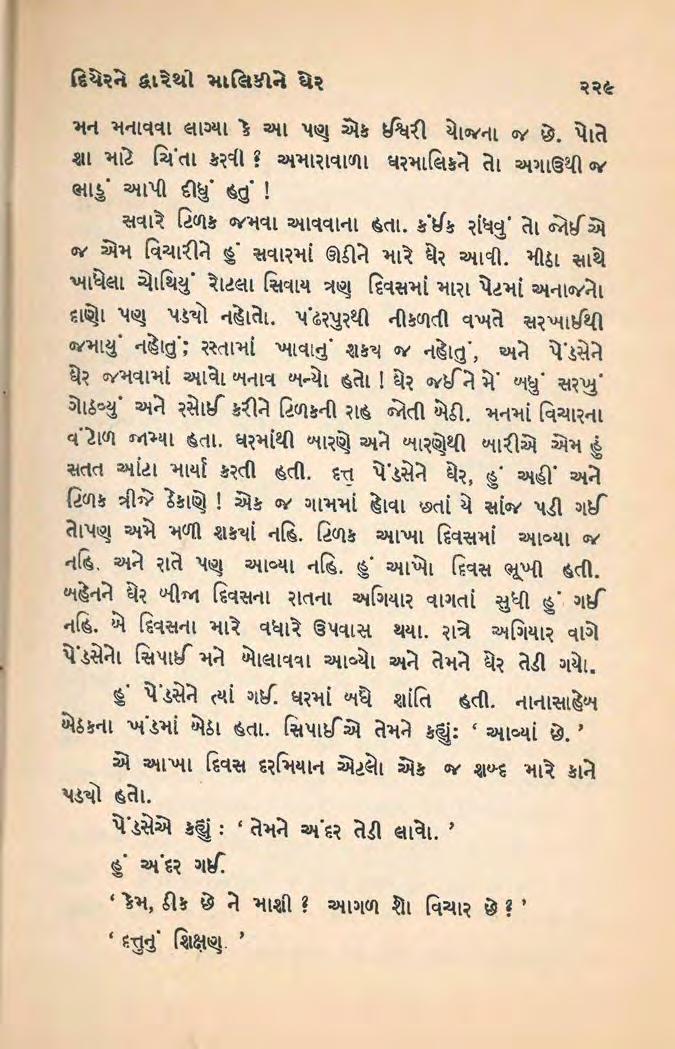 દિયેરને દ્વારેથી માલિકીને ઘેર ૨૨૯
મન મનાવવા લાગ્યા કે આ પણ એક ઈશ્વરી યોજના જ છે. પોતે
શા માટે ચિંતા કરવી ? અમારાવાળા ઘરમાલિકને તો અગાઉથી જ
ભાડું આપી દીધું હતું !
સવારે ટિળક જમવા આવવાના હતા. કંઈક રાંધવું તો જોઈએ
જ એમ વિચારીને હું સવારમાં ઊઠીને મારે ઘેર આવી. મીઠા સાથે
ખાધેલા ચોથિયું રોટલા સિવાય ત્રણ દિવસમાં મારા પેટમાં અનાજનો
દાણો પણ પડયો નહોતો. પંઢરપુરથી નીકળતી વખતે સરખાઈથી
જમાયું નહોતું; રસ્તામાં ખાવાનું શકય જ નહોતું, અને પેંડસેને
ઘેર જમવામાં આવો બનાવ બન્યો હતો ! ઘેર જઈને મેં બધું સરખું
ગોઠવ્યું અને રસોઈ કરીને ટિળકની રાહ જોતી બેઠી. મનમાં વિચારના
વંટોળ જામ્યા હતા. ઘરમાંથી બારણે અને બારણેથી બારીએ એમ હું
સતત આંટા માર્યા કરતી હતી. દત્ત પેંડસેને ઘેર, હું અહીં અને
ટિળક ત્રીજે ઠેકાણે ! એક જ ગામમાં હોવા છતાં યે સાંજ પડી ગઈ
તોપણ અમે મળી શકયાં નહિ. ટિળક આખા દિવસમાં આવ્યા જ
નહિ. અને રાતે પણ આવ્યા નહિ. હું આખો દિવસ ભૂખી હતી.
બહેનને ઘેર બીજા દિવસના રાતના અગિયાર વાગતાં સુધી હું ગઈ
નહિ. બે દિવસના મારે વધારે ઉપવાસ થયા. રાત્રે અગિયાર વાગે
પેંડસેનો સિપાઈ મને બોલાવવા આવ્યો અને તેમને ઘેર તેડી ગયો.
હું પેંડસેને ત્યાં ગઈ. ઘરમાં બધે શાંતિ હતી. નાનાસાહેબ
બેઠકના ખંડમાં બેઠા હતા. સિપાઈએ તેમને કહ્યું: ‘ આવ્યાં છે. ’
એ આખા દિવસ દરમિયાન એટલો એક જ શબ્દ મારે કાને
પડયો હતો.
પેંડસેએ કહ્યું : ‘ તેમને અંદર તેડી લાવો. ’
હું અંદર ગઈ.
‘ કેમ, ઠીક છે ને માશી ? આગળ શો વિચાર છે ? ’
‘ દત્તુનું શિક્ષણ. ’